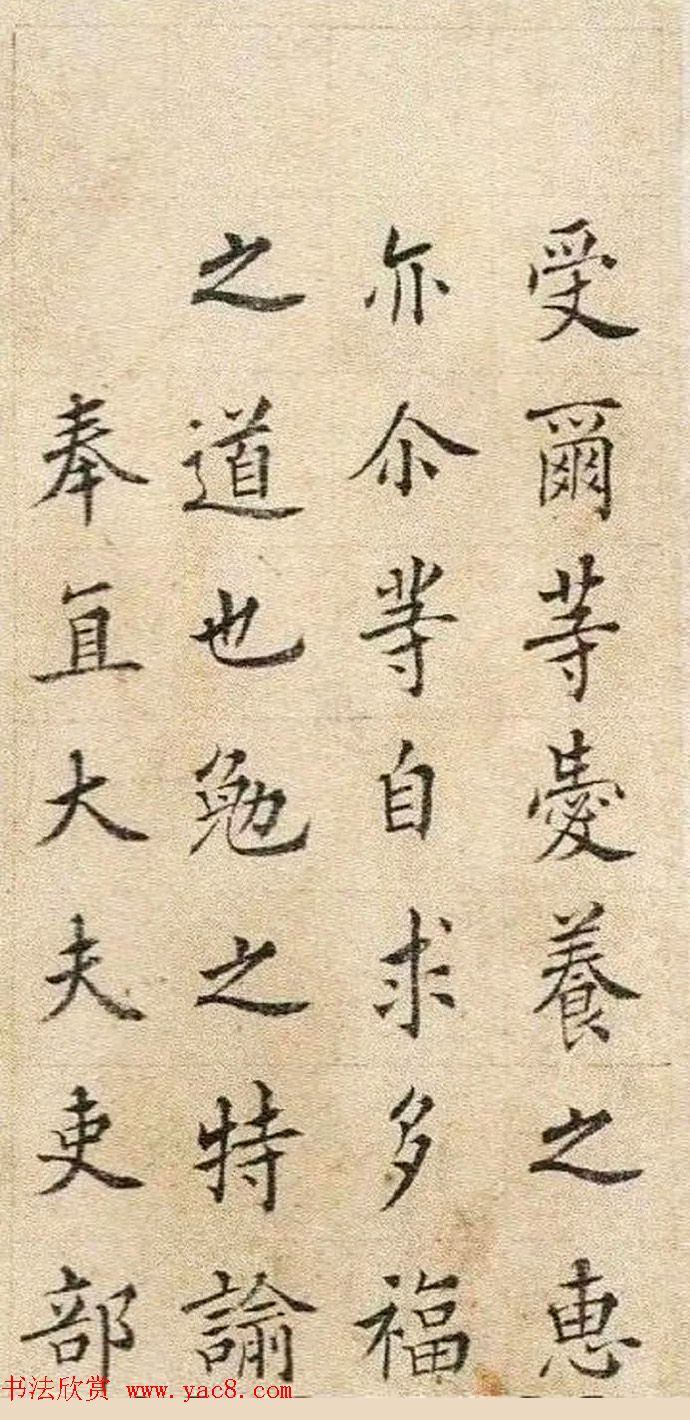 受爾等養之惠
亦尒等自求多福
之道也勉之特諭
奉直大夫吏部
书法欣赏 www.yac8.com